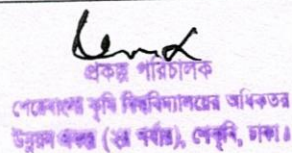 প্রকল্প পরিচালক
শেরেবাংলা কৃষি বিশ্ববিদ্যালয়ের অধিকতর
উন্নয়ন প্রকল্প (২য় পর্যায়), শেকৃবি, ঢাকা।